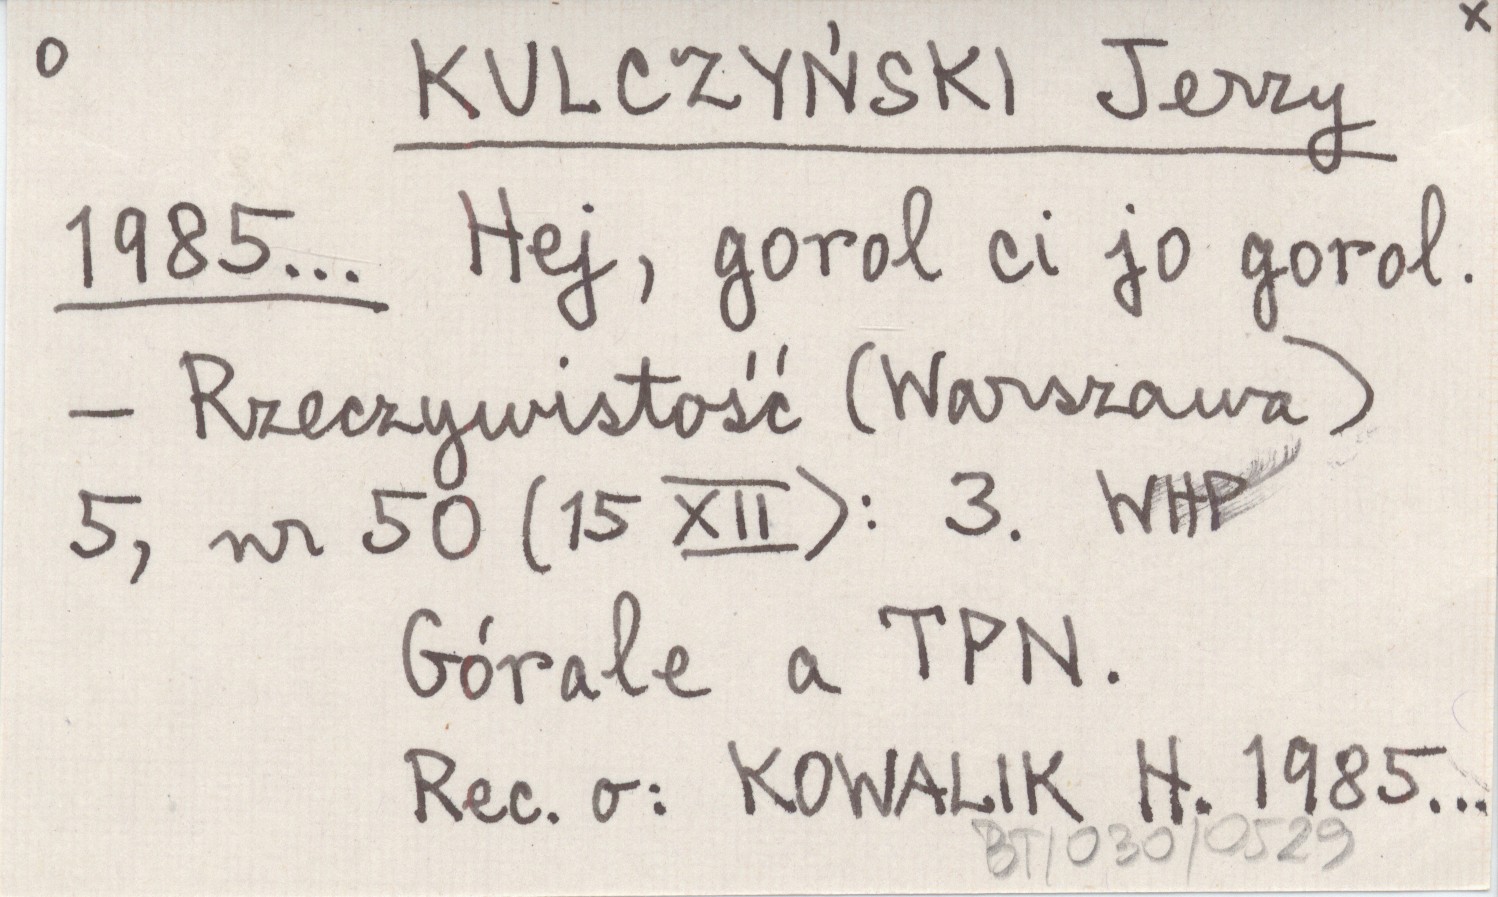 o x
KULCZYŃSKI Jerzy
1985... Hej, gorol ci jo gorol.
– Rzeczywistość (Warszawa)
5, nr 50 (15 XII): 3. WHP
Górale a TPN.
Rec. o: KOWALIK H. 1985...
BT/030/0529